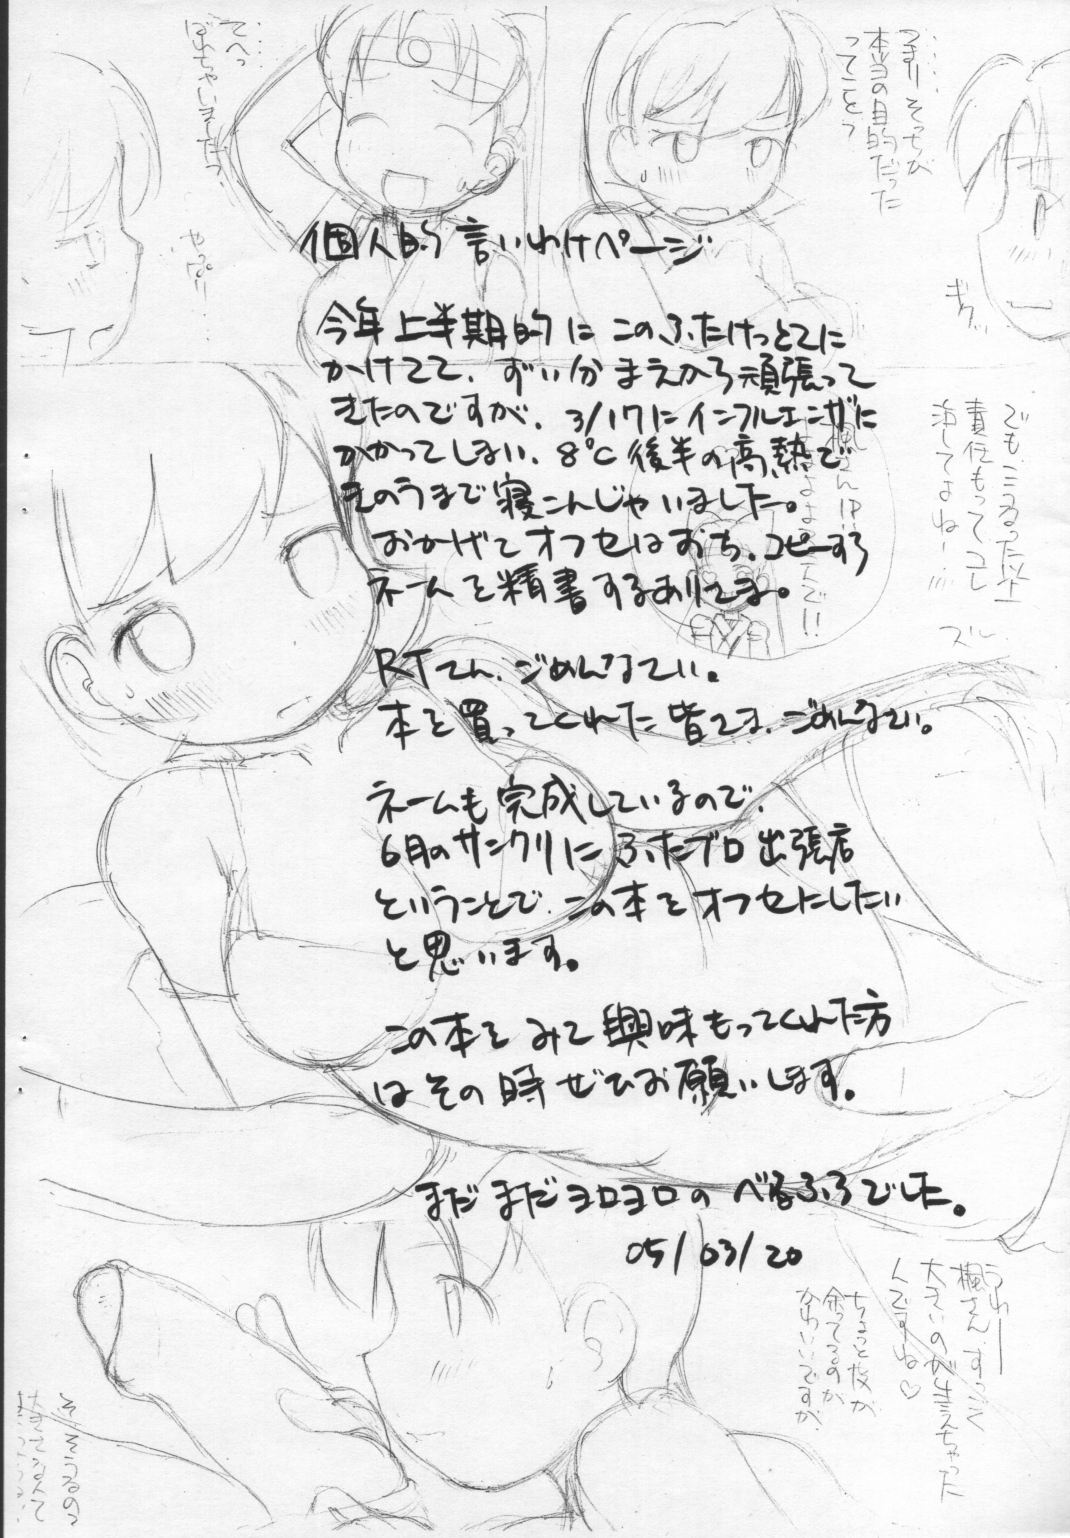 個人的言いわけページ
今年上半期的にこのふたけっとてに
かけてて、ずい分まえから頑張って
きたのですが、3/17にインフルエンザに
かかってしまい、8℃後半の高熱で
きのうまで寝こんじゃいました。
おかげでオフセはおち、コピーすら
ネームを精書するありさま。
RTさん、ごめんなさい。
本を買ってくれた皆さま、ごめんなさい。
ネームも完成しているので、
6月のサンクリにふたプロ出張店
ということで、この本をオフセにしたい
と思います。
この本をみて興味もってくれた方
はその時ぜひお願いします。
まだまだヨロヨロのべるふろでした。
05/03/20
つまりそっちが
本当の目的だった
ってことっ
ギク…
責任もってコレ
ズル
うわー
楓さん、すっごく
大きいのが生えちゃった
んですね♡
ちょっと皮が
余ってるのが
かわいいですが